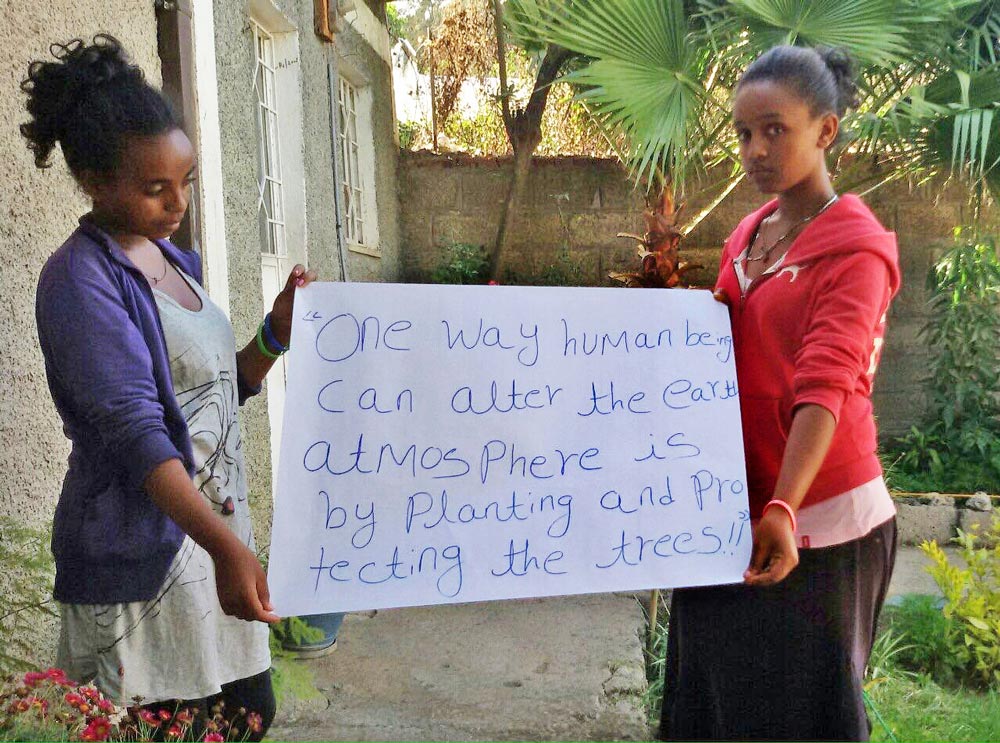 "One way human being
can alter the earth
atmosphere is
by Planting and Pro
tecting the trees.!!"